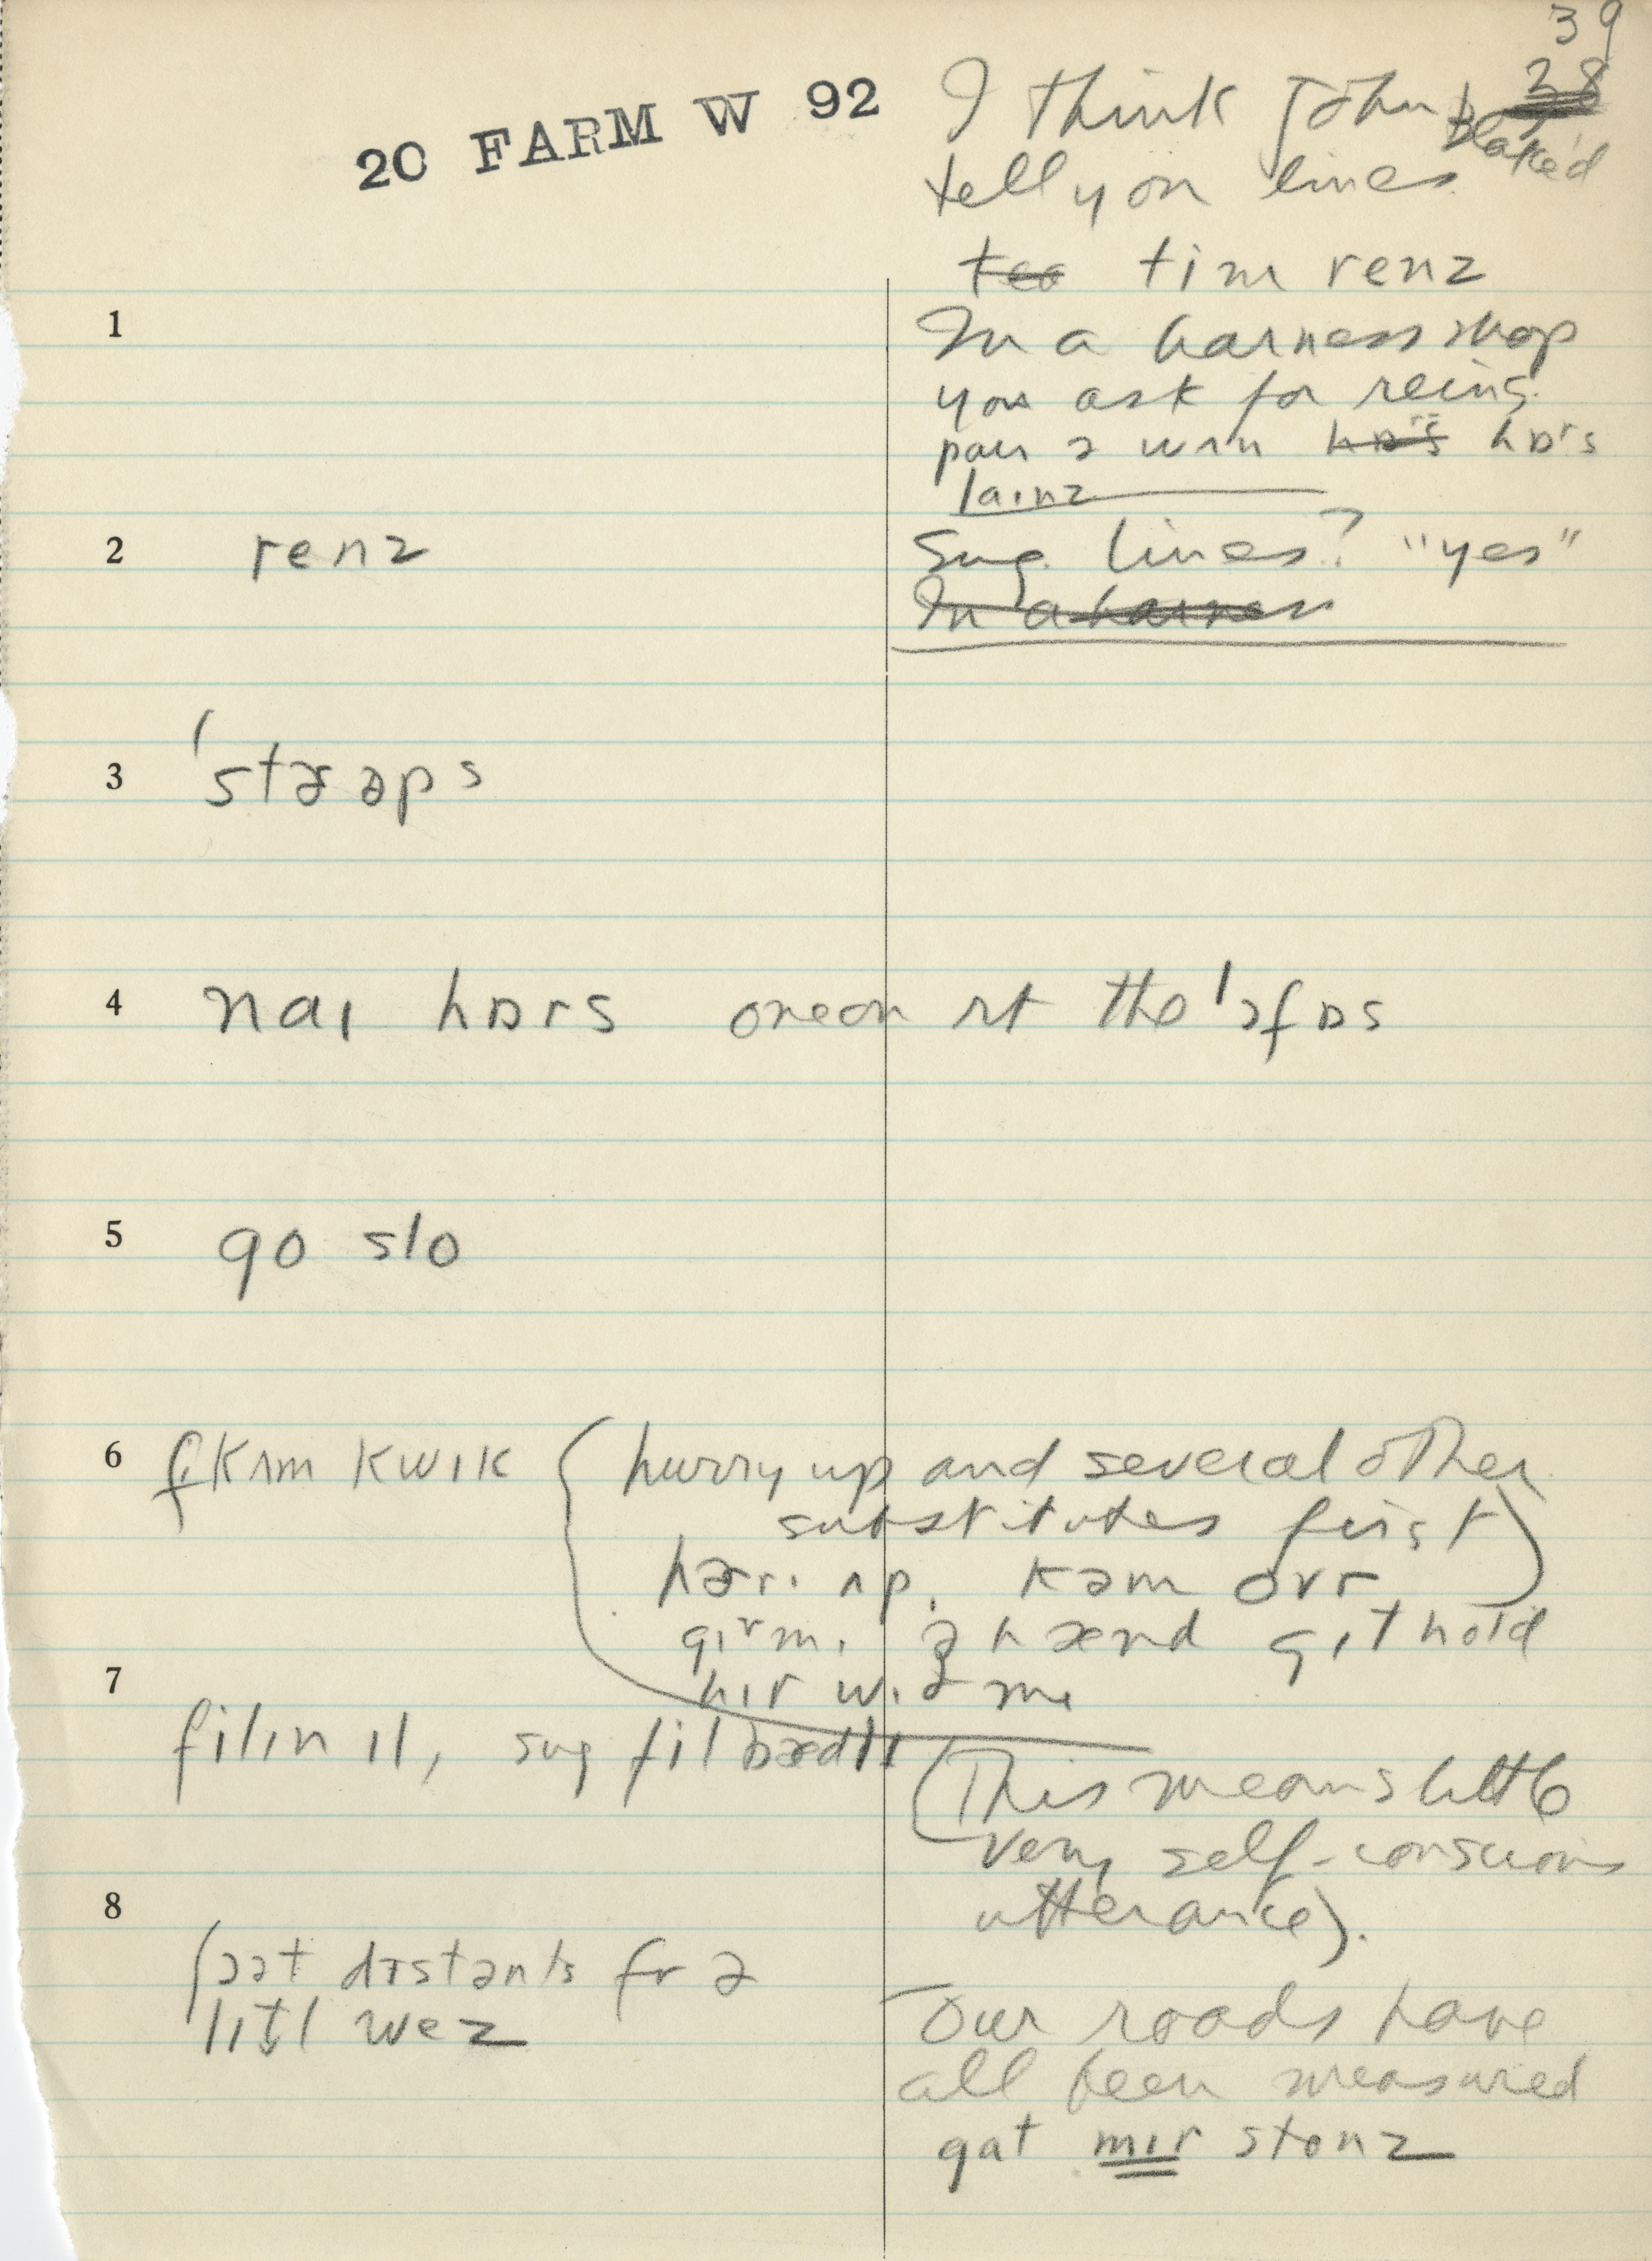 39
28
20 FARM W 92
I think John Blake'd
tell you lines
tim renz
1
In a harness shop
you ask for reins.
lainz
2 renz
Sug. lines? "yes"
In a harness
3
4 naɪ hɒrs oneon rt the 'ɔfɒs
5 go slo
6 kʌm kwɪk (hurry up and several other
substitutes first)
hərɪ ʌp. kəm ovr
hænd gɪt hold
7
filin ɪl, sug fil bædlɪ
(This means little
very self-conscious
utterance).
8
ʃɔət dɪstənts fr ə
lɪtl wez
Our roads have
all been measured
gat mɪr stonz